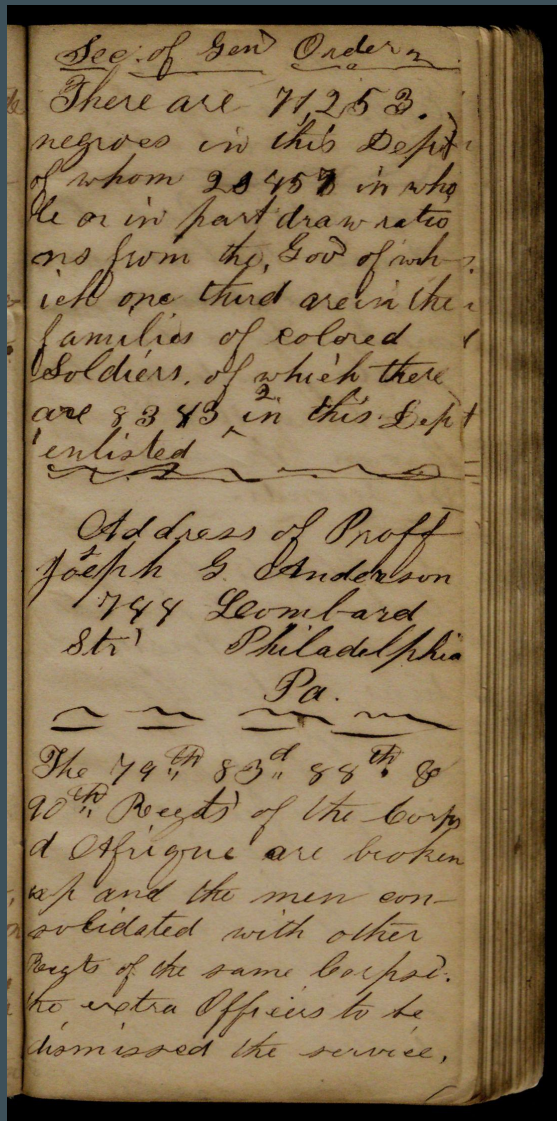 Sec. of Genl Orders
There are 71253.
negroes in this Dept
of whom in who
le or in part draw ratio
ns from the Gov of wh-
ich one third are in the
families of colored
Soldiers. of which there
are 8343 in this Dept
enlisted
Address of Proff
Joseph G Anderson
Lombard
Str Philadelphia
Pa.
The 79th 83d 88th &
90th Regts of the Corps
d Afrique are broken
up and the men con-
solidated with other
Regts of the same Corps.
the extra Officers to be
dismissed the service.